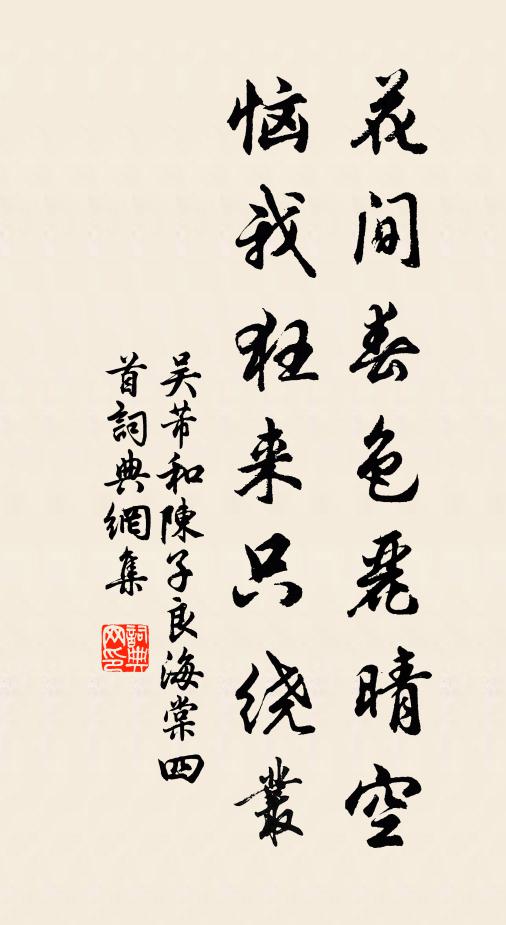 花间春色丽晴空
恼我狂来只绕丛
吴芾和陳子良海棠四
首詞典網集
詞典
网印